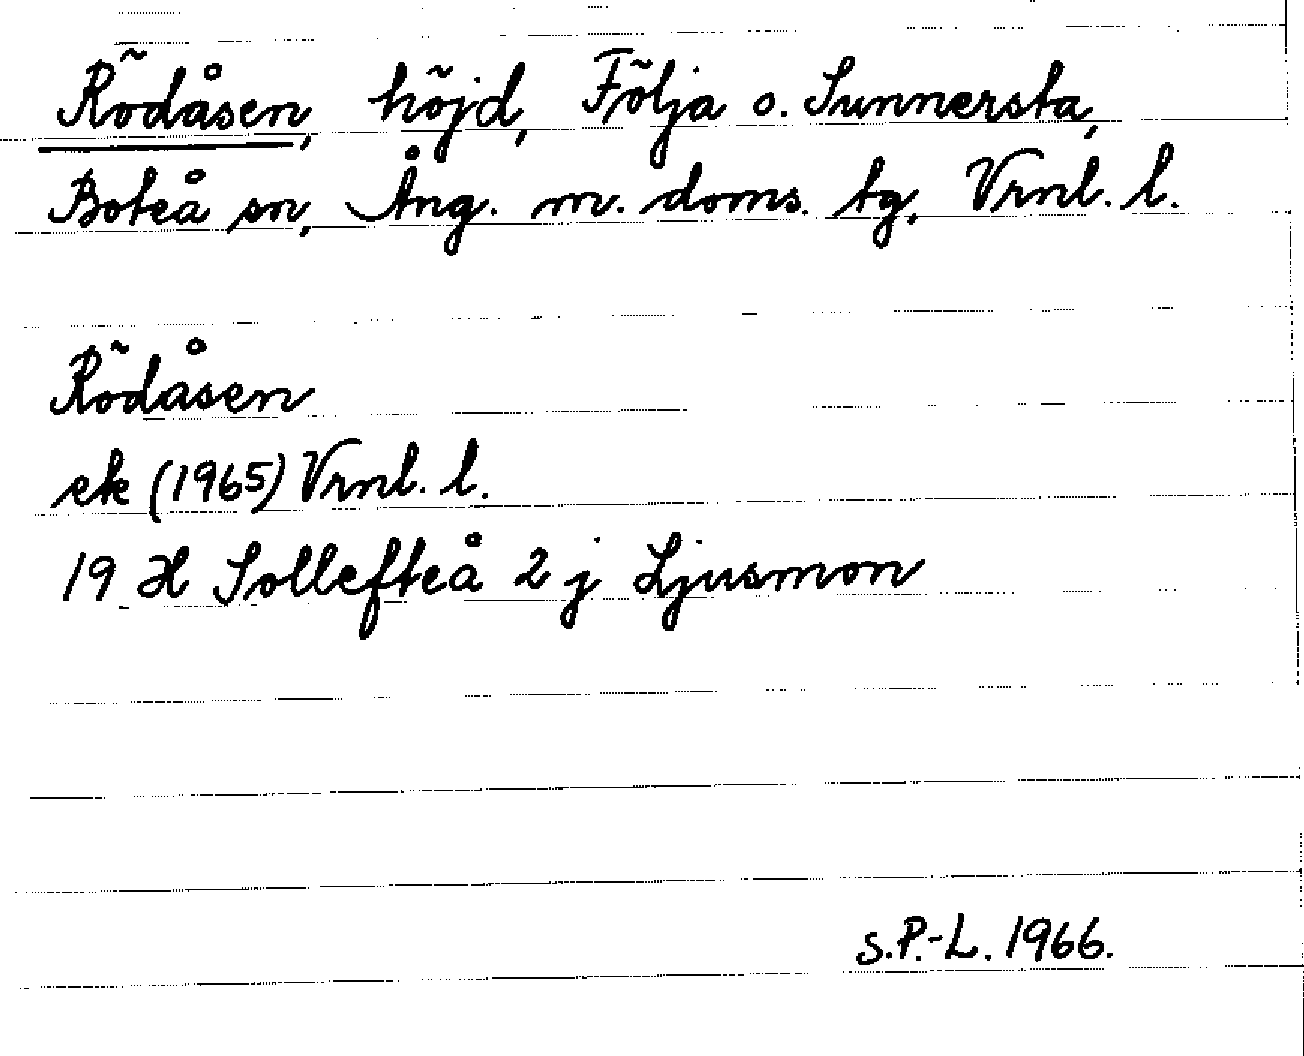 Rödåsen, höjd, Följa o. Sunnersta,
Boteå sn, Ång. m. doms. tg, Vrml. l.
Rödåsen
ek (1965) Vrml. l.
19 H Sollefteå 2 j Ljusmon
S.P.-L. 1966.